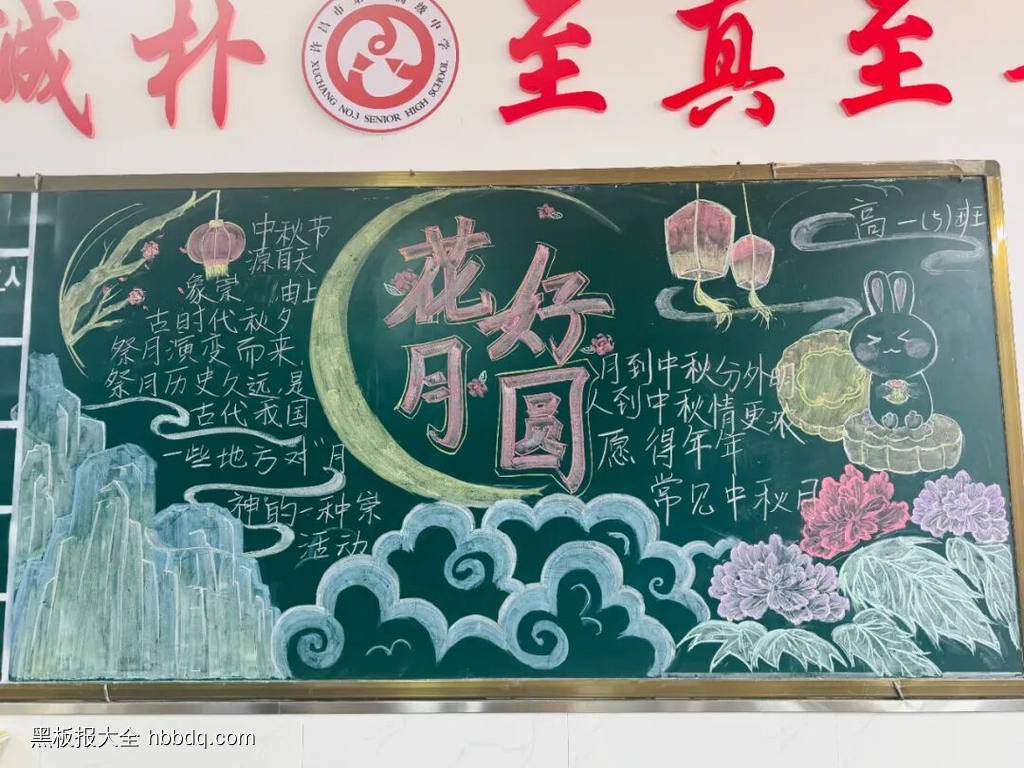 诚朴
许昌市第三高级中学
XUCHANG NO.3 SENIOR HIGH SCHOOL
至真至
高一(5)班
花好
月圆
中秋节
源自天
象崇 由上
古时代秋夕
祭月演变而来
祭月历史久远,是
古代我国
一些地方对"月
神的一种崇
活动
月到中秋分外明
人到中秋情更浓
愿得年年
常见中秋月
黑板报大全 hbbdq.com